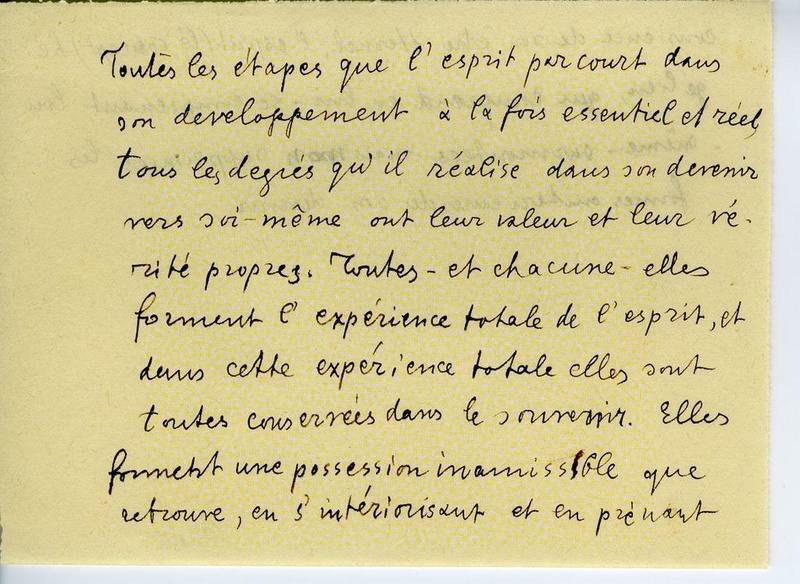 Toutes les étapes que l'esprit parcourt dans
son developpement à la fois essentiel et réel,
tous les degrés qu'il réalise dans son devenir
vers soi-même ont leur valeur et leur vé-
rité propres. Toutes - et chacune - elles
forment l'expérience totale de l'esprit, et
dans cette expérience totale elles sont
toutes conservées dans le souvenir. Elles
forment une possession inamissible que
retrouve, en s'intériorisant et en prenant